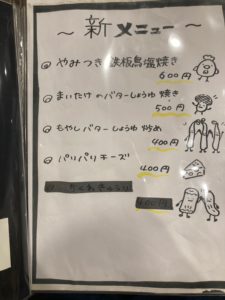 ～ 新メニュー ～
やみつき 鉄板鳥塩焼き
600円
まいたけのバターしょうゆ焼き
500円
もやしバターしょうゆ炒め
400円
パリパリチーズ
400円
400円